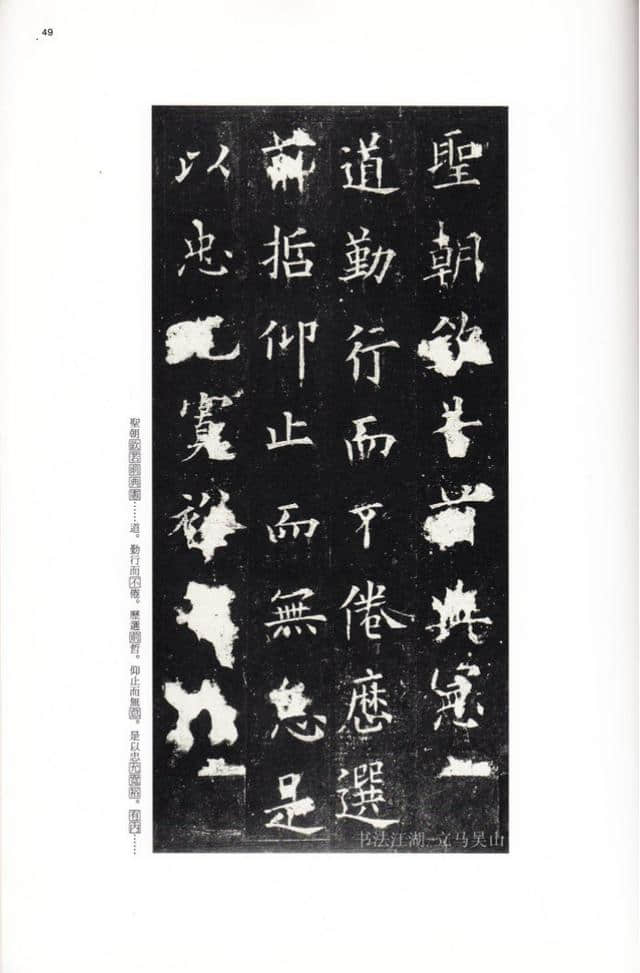 49
聖朝欽若前典憲
道勤行而不倦歷選
前哲仰止而無怠是
以忠允寬裕
聖朝欽若前典憲……道。勤行而不倦。歷選前哲。仰止而無怠。是以忠允寬裕。有內……
书法江湖_立马吴山